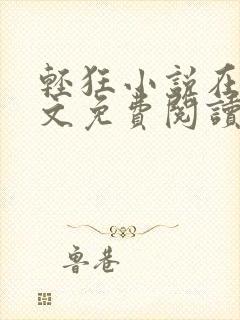 輕狂小說在
文免費閱讀
魯巷